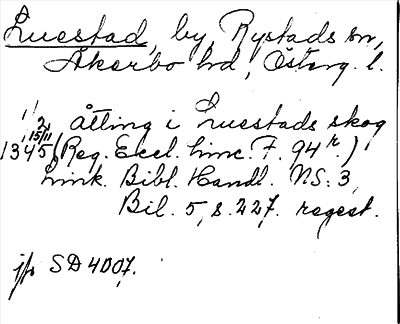 Luestad, by, Rystads sn,
Åkerbo hd, Österg. l.
1/2 åtting i Luestads skog
1345 15/11 (Reg. Eccl. Linc. F. 94r)
Link. Bibl. Handl. NS: 3,
Bil. 5, s. 227. regest.
jfr SD 4007.